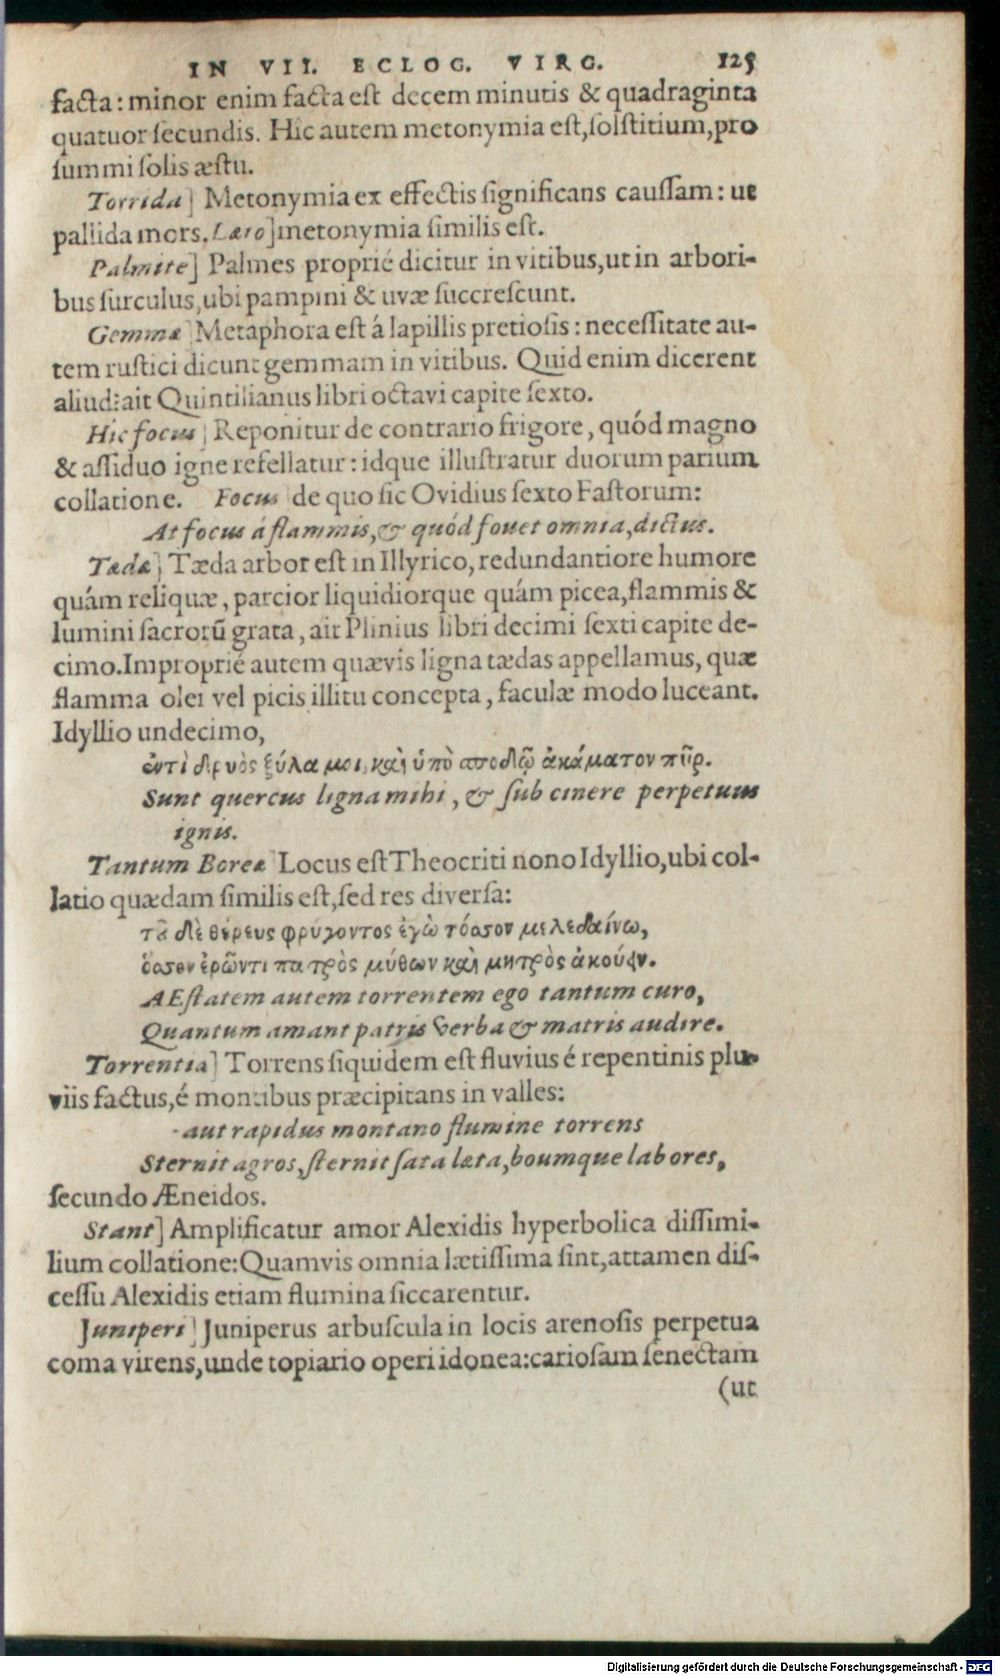 IN VII. ECLOG. VIRG. 125
facta: minor enim facta est decem minutis & quadraginta
quatuor secundis. Hic autem metonymia est, solstitium, pro
summi solis æstu.
Torrida] Metonymia ex effectis significans caussam: ut
pallida mors. Læto] metonymia similis est.
Palmite] Palmes proprié dicitur in vitibus, ut in arbori-
bus surculus, ubi pampini & uvæ succrescunt.
Gemmæ] Metaphora est á lapillis pretiosis: necessitate au-
tem rustici dicunt gemmam in vitibus. Quid enim dicerent
aliud? ait Quintilianus libri octavi capite sexto.
Hic focus] Reponitur de contrario frigore, quód magno
& assiduo igne refellatur: idque illustratur duorum parium
collatione. Focus] de quo sic Ovidius sexto Fastorum:
At focus á flammis, & quód fovet omnia, dictus.
Tædæ] Tæda arbor est in Illyrico, redundantiore humore
quám reliquæ, parcior liquidiorque quám picea, flammis &
lumini sacrorũ grata, ait Plinius libri decimi sexti capite de-
cimo. Improprié autem quævis ligna tædas appellamus, quæ
flamma olei vel picis illitu concepta, faculæ modo luceant.
Idyllio undecimo,
ἐντὶ δρυὸς ξύλα μοι, καὶ ὑπὸ σποδῷ ἀκάματον πῦρ.
Sunt quercus ligna mihi, & sub cinere perpetuus
ignis.
Tantum Boreæ] Locus est Theocriti nono Idyllio, ubi col-
latio quædam similis est, sed res diversa:
τῶ δὲ θέρευς φρύγοντος ἐγὼ τόσσον μελεδαίνω,
ὅσσον ἐρῶντι πατρὸς μύθων καὶ μητρὸς ἀκούειν.
AEstatem autem torrentem ego tantum curo,
Quantum amant patris verba & matris audire.
Torrentia] Torrens siquidem est fluvius é repentinis plu-
viis factus, é montibus præcipitans in valles:
- aut rapidus montano flumine torrens
Sternit agros, sternit sata læta, boumque labores,
secundo Æneidos.
Stant] Amplificatur amor Alexidis hyperbolica dissimi-
lium collatione: Quamvis omnia lætissima sint, attamen dis-
cessu Alexidis etiam flumina siccarentur.
Juniperi] Juniperus arbuscula in locis arenosis perpetua
coma virens, unde topiario operi idonea: cariosam senectam
(ut
Digitalisierung gefördert durch die Deutsche Forschungsgemeinschaft - DFG